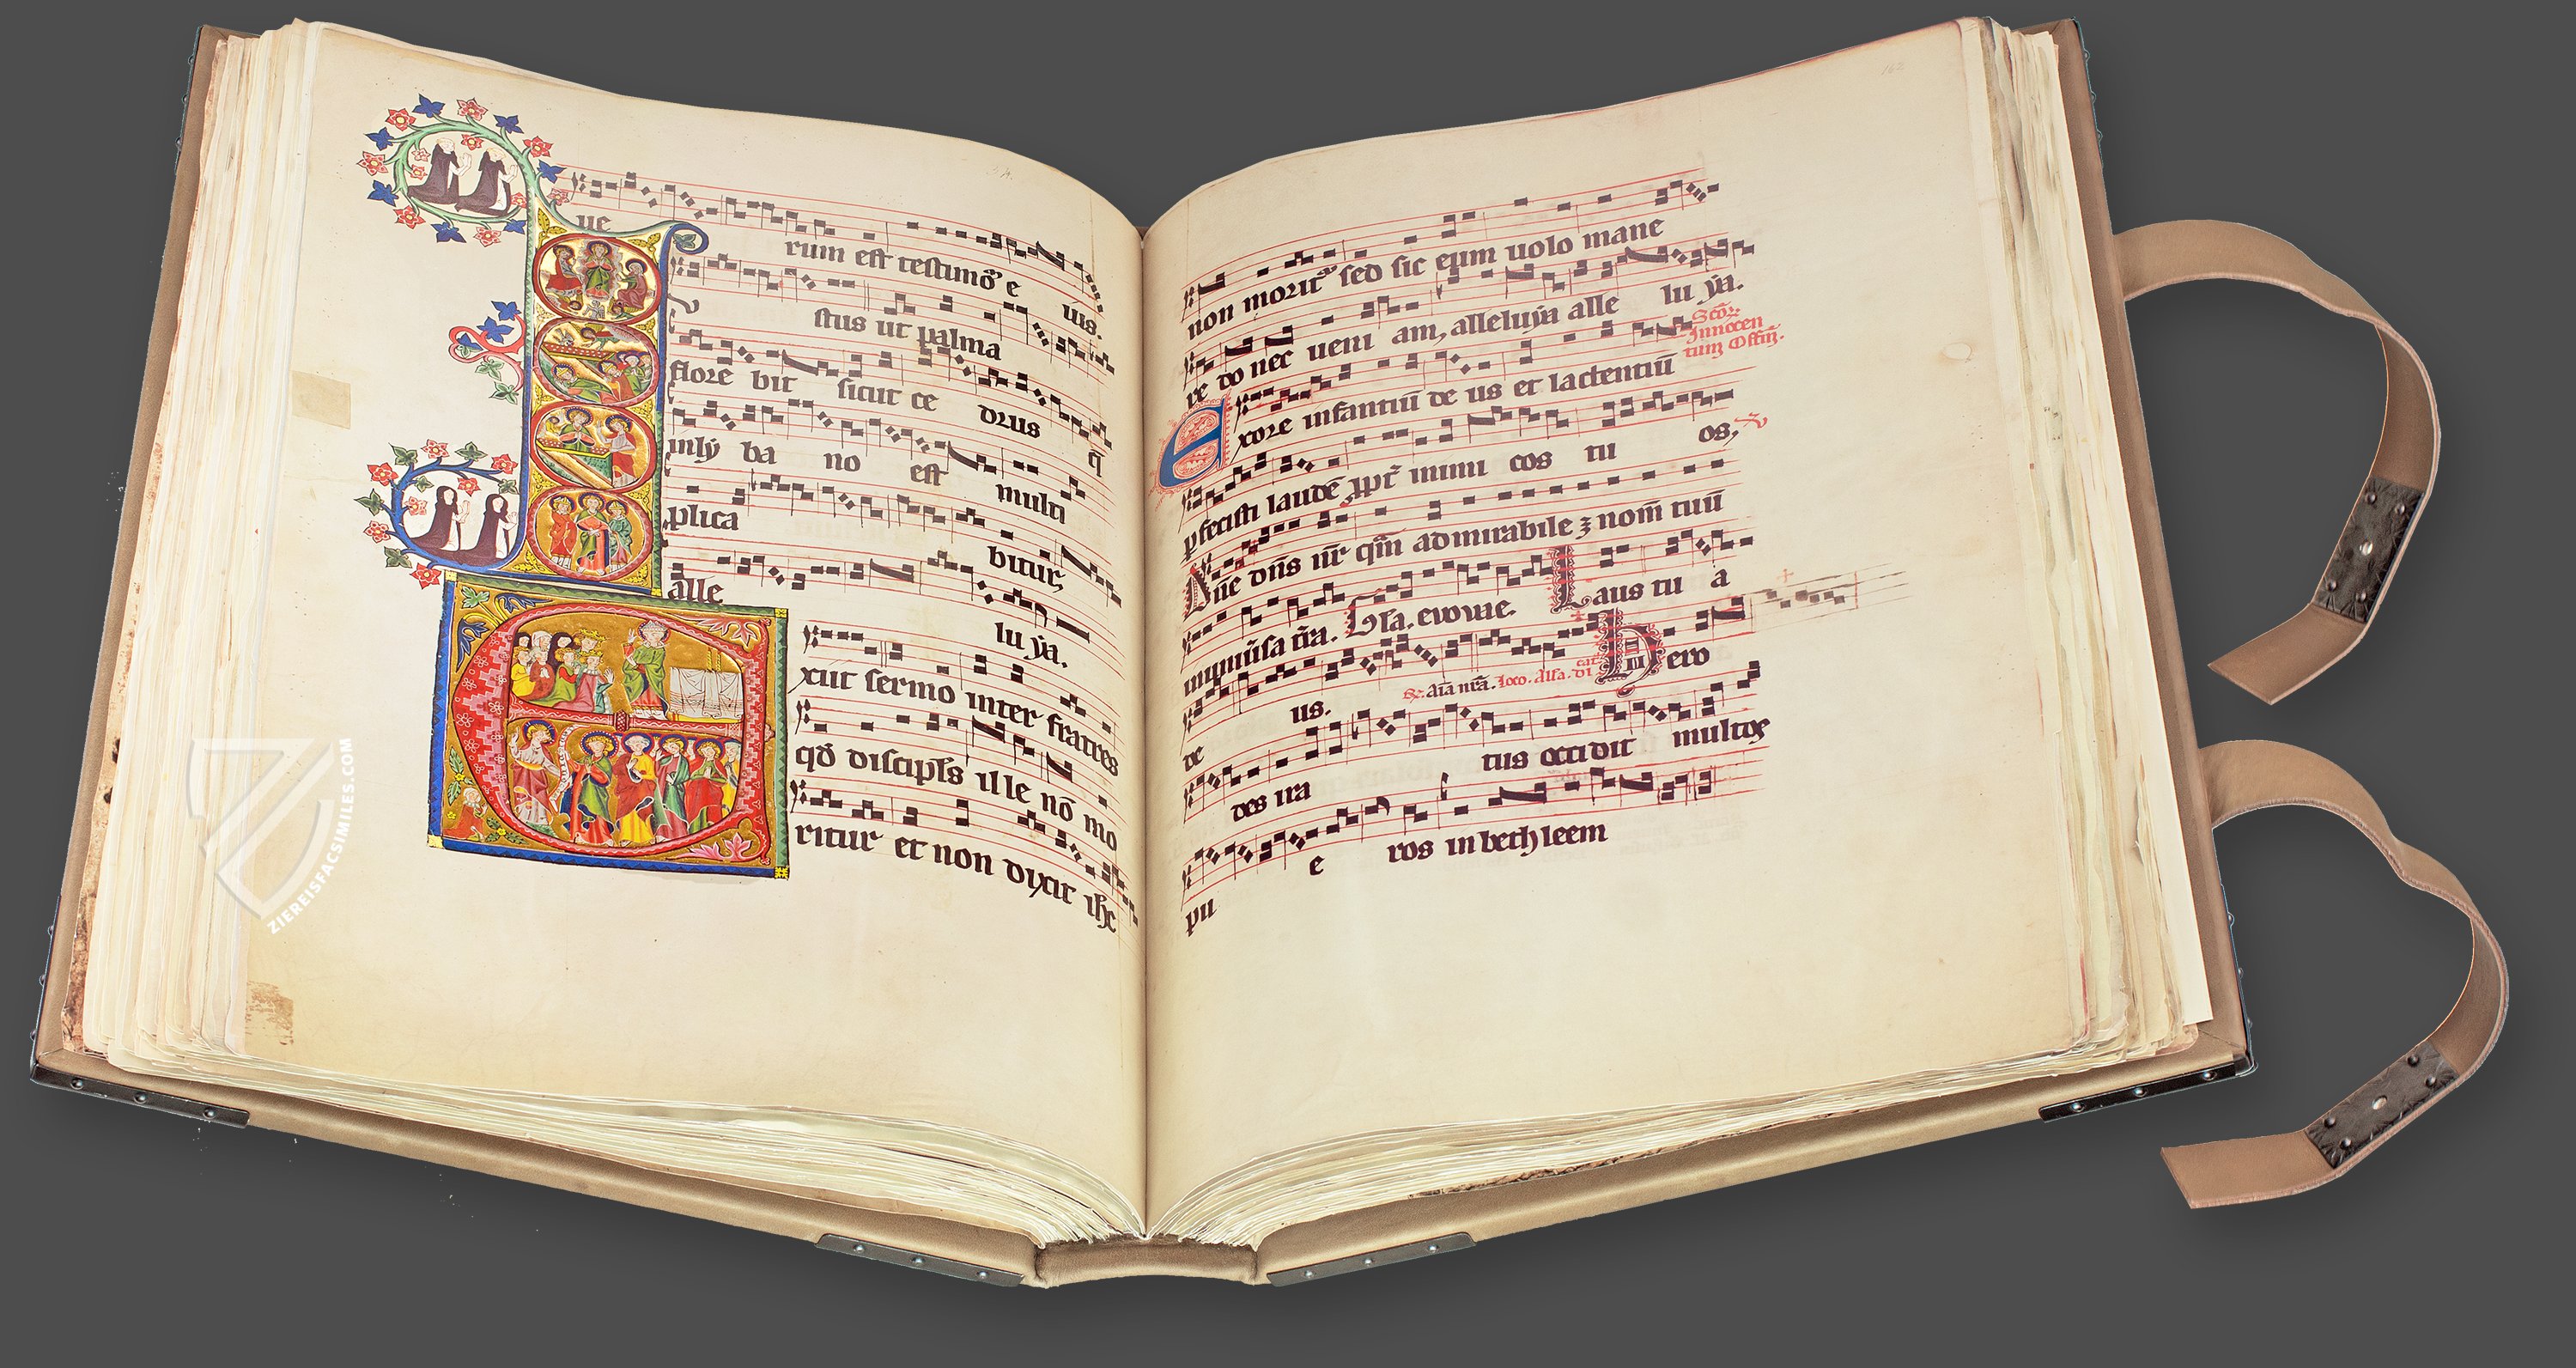 ue
rum est testimō e uis.
stus ut palma
flore bit sicut ce drus
q̄
inlẏ ba no est multi
plica
bitur,
alle
lu ẏa.
xiit sermo inter fratres
qd̄ discipl̄s ille nō mo
ritur et non dixit ih̄c
162
non morit᷑ sed sic eum uolo mane
re do nec ueni am, alleluẏa alle lu ẏa.
Scōꝝ
Innocen
tum Offm̄.
Exore infantiū de us et lactentiū
pfecisti laudē ꝓpt᷑ inimi cos tu os,
Dn̄e dn̄s nr̄ qm̄ admirabile ꝫ nom̄ tuū
in uniūsa t̄ra. Gla. euouae. Laus tu a
de us.
Aīa nrā. loco. Alla. di
cat᷑
Hero
des ira tus occidit multos
pu e ros in bethleem
ZIEREISFACSIMILES.COM